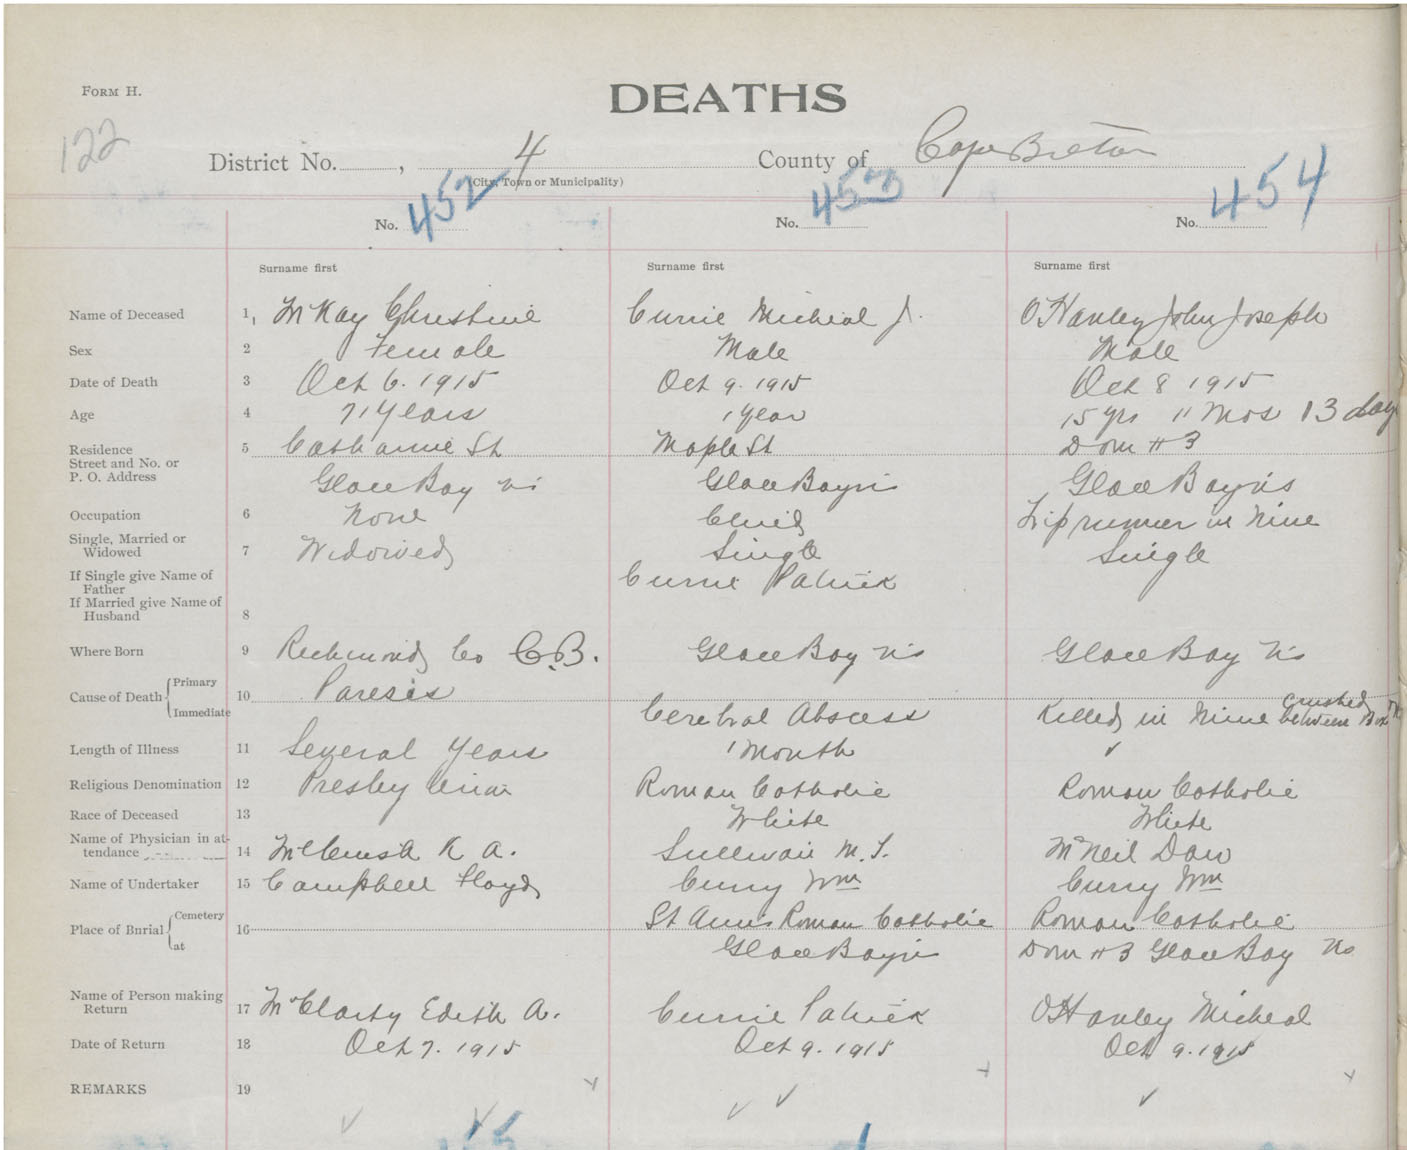 FORM H.
DEATHS
122
District No. , 4 County of Cape Breton
(City, Town or Municipality)
No. 452 No. 453 No. 454
Surname first Surname first Surname first
Name of Deceased 1 McKay Christine Currie Micheal J. O'Hanley John Joseph
Sex 2 Female Male Male
Date of Death 3 Oct 6. 1915 Oct 9. 1915 Oct 8 1915
Age 4 71 Years 1 Year 15 yrs 11 Mos 13 days
Residence 5 Catharine St Maple St Dom #3
Street and No. or
P. O. Address Glace Bay Ns Glace Bay Ns Glace Bay Ns
Occupation 6 None Child Trip runner in Mine
Single, Married or
Widowed 7 Widowed Single Single
If Single give Name of
Father Currie Patrick
If Married give Name of
Husband 8
Where Born 9 Richmond Co C.B. Glace Bay Ns Glace Bay Ns
Cause of Death Primary 10 Paresis
Immediate Cerebral Abscess Killed in Mine crushed between Box
Length of Illness 11 Several Years 1 Month
Religious Denomination 12 Presbyterian Roman Catholic Roman Catholic
Race of Deceased 13 White White
Name of Physician in at-
tendance 14 K A. Sullivan M. T. McNeil Dan
Name of Undertaker 15 Campbell Floyd Curry Wm Curry Wm
Place of Burial Cemetery 16 St Anns Roman Catholic Roman Catholic
at Glace Bay Ns Dom #3 Glace Bay Ns
Name of Person making
Return 17 McClarty Edith A. Currie Patrick O'Hanley Micheal
Date of Return 18 Oct 7. 1915 Oct 9. 1915 Oct 9. 1915
REMARKS 19